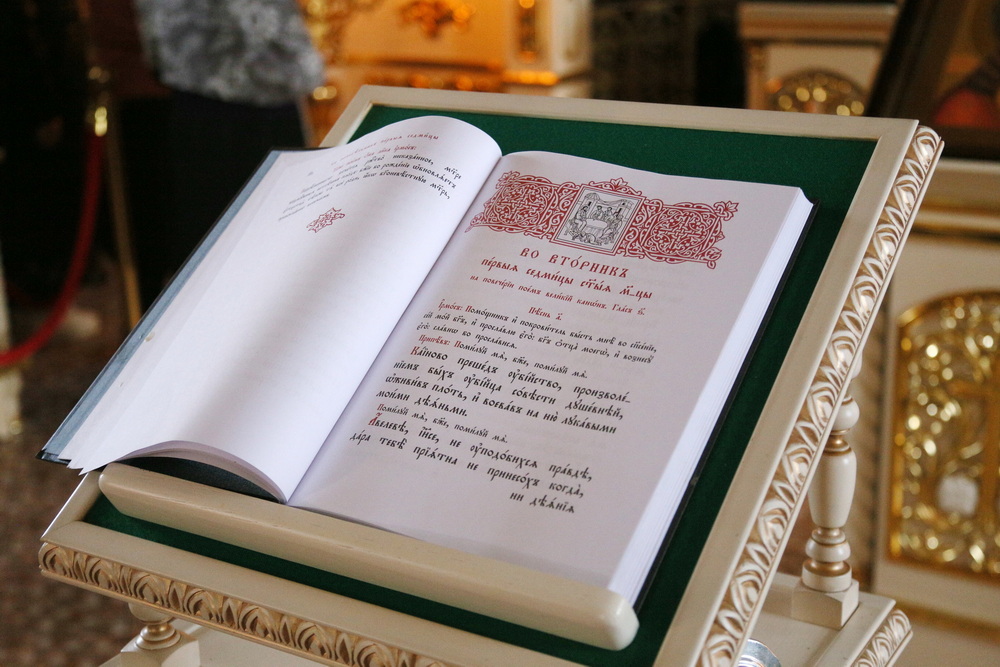 ВО ВТО́РНИКЪ
пе́рвыѧ седми́цы ст҃ы́ѧ м҃_цы
на повече́рїи пое́мъ вели́кїй кано́нъ. Гла́съ ѕ҃.
Пѣ́снь а҃.
І҆рмо́съ: Помо́щникъ и҆ покрови́тель бы́сть мнѣ̀ во сп҃се́нїе,
се́й мо́й бг҃ъ, и҆ просла́влю є҆го̀: бг҃ъ ѻ҆тца̀ моегѡ̀, и҆ вознесꙋ̀
є҆го̀: сла́внѡ бо просла́висѧ.
Припѣ́въ: Поми́лꙋй мѧ̀, бж҃е, поми́лꙋй мѧ̀.
Ка́їново преше́дъ ᲂу҆бі́йство, произволе́_
нїемъ бы́хъ ᲂу҆бі́йца со́вѣсти дꙋше́внѣй,
ѡ҆живи́въ пло́ть, и҆ воева́въ на ню̀ лꙋка́выми
мои́ми дѣѧ́ньми.
Поми́лꙋй мѧ̀, бж҃е, поми́лꙋй мѧ̀.
А҆́велевѣ, і҆и҃се, не ᲂу҆подо́бихсѧ пра́вдѣ,
да́ра тебѣ̀ прїѧ́тна не принесо́хъ когда̀,
ни дѣѧ̑нїѧ